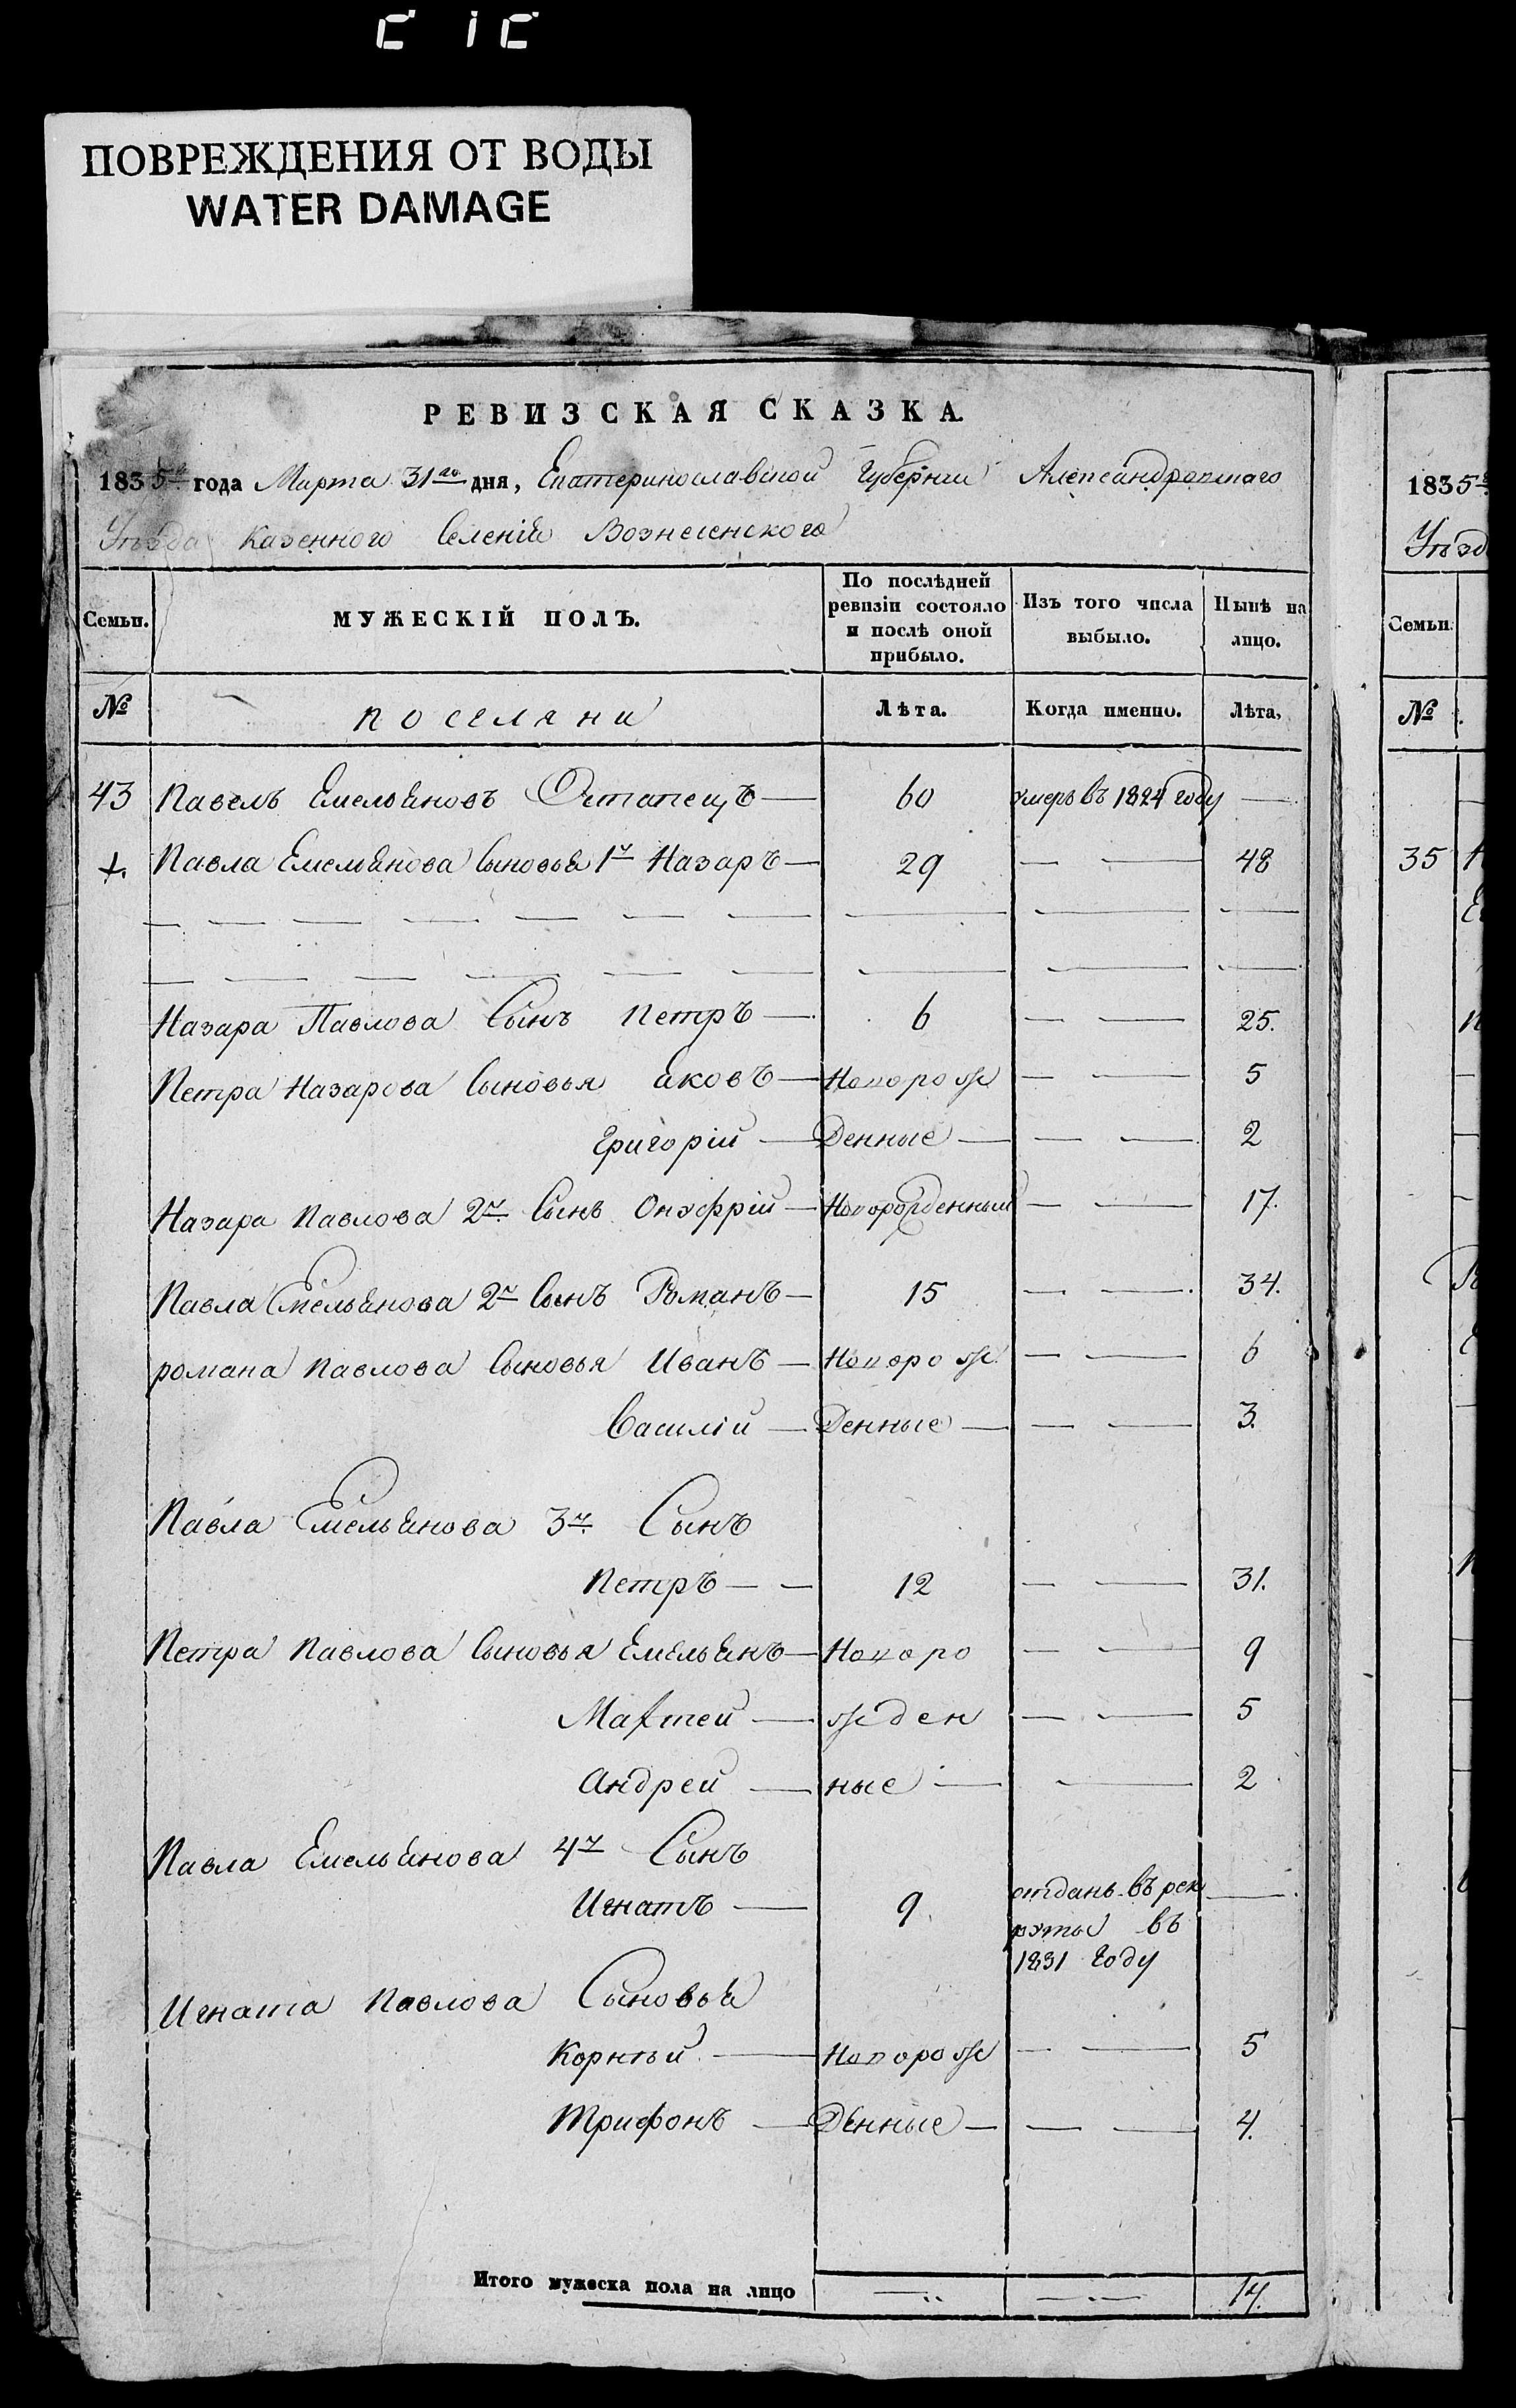 ПОВРЕЖДЕНИЯ ОТ ВОДЫ
WATER DAMAGE
РЕВИЗСКАЯ СКАЗКА.
1835го года Марта 31го дня, Екатеринославской Губернии Александровского
Уъзда Казенного Селенія Вознесенского
Семьи. МУЖЕСКІЙ ПОЛЪ. По послѣдней ревизіи состояло и послѣ оной прибыло. Изъ того числа выбыло. Нынѣ на лицо.
№ поселяни Лѣта. Когда именно. Лѣта,
43 Павелъ Емельяновъ Остапецъ — 60 умеръ въ 1824 году —
+. Павла Емельянова Сыновья 1й Назаръ — 29 — — 48
Назара Павлова Сынъ Петръ — 6 — — 25.
Петра Назарова Сыновья Яковъ — Новорож — — 5
Григорій — Денные — — — 2
Назара Павлова 2й Сынъ Онуфрій — Новорожденный — — 17.
Павла Емельянова 2й Сынъ Романъ — 15 — — 34.
романа Павлова Сыновья Иванъ — Новорож — — 6
Василій — Денные — — — 3.
Павла Емельянова 3й Сынъ
Петръ — — 12 — — 31.
Петра Павлова Сыновья Емельянъ — Новоро — — 9
Мафтей — жден — — 5
Андрей — ные — — 2
Павла Емельянова 4й Сынъ
Игнатъ — 9 отданъ въ рек —
руты въ
1831 Году
Игната Павлова Сыновья
Корнѣй — Новорож — — 5
Трифонъ — Денные — — — 4.
Итого мужеска пола на лицо 14.
1835
Уъзд
Семьи.
№
35